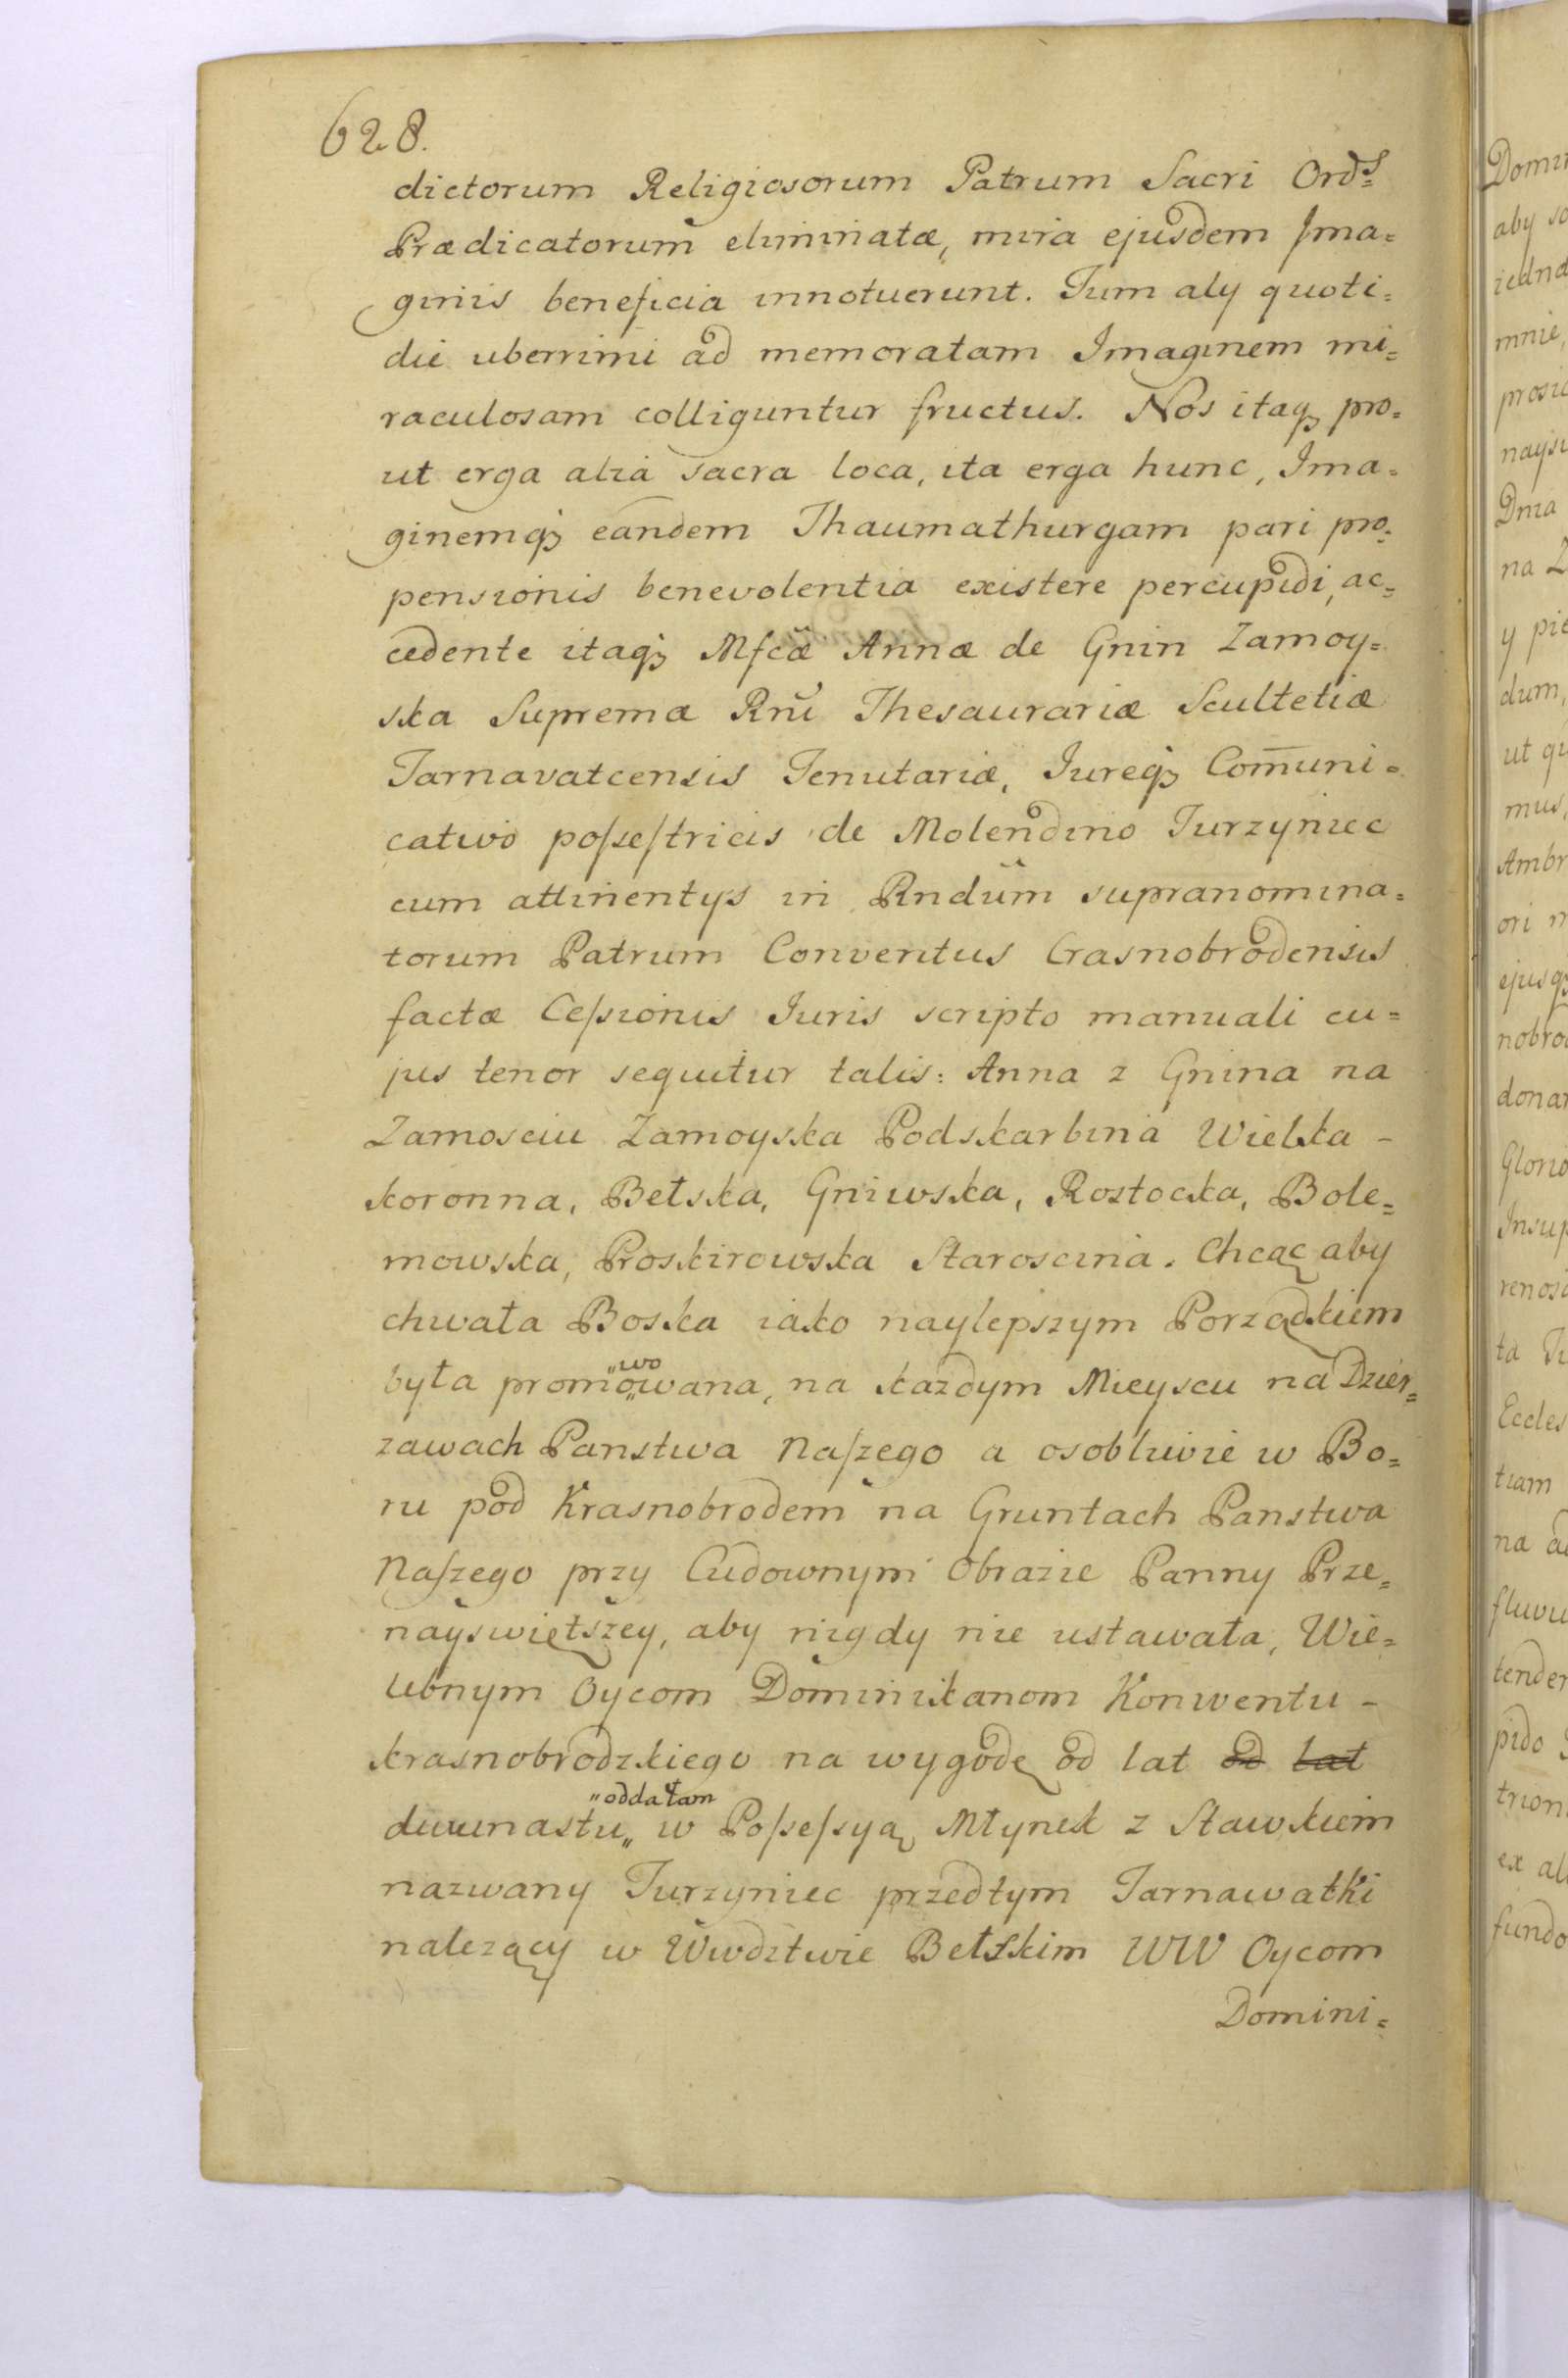 628.
dictorum Religiosorum Patrum Sacri Ordˢ
Prædicatorum eliminatæ, mira ejusdem Ima=
ginis beneficia innotuerunt. Tum aly quoti=
die uberrimi ad memoratam Imaginem mi=
raculosam colliguntur fructus. Nos itaqꝫ pro=
ut erga alia sacra loca, ita erga hunc, Ima=
ginemqꝫ eandem Thaumathurgam pari pro=
pensionis benevolentia existere percupidi, ac=
cedente itaqꝫ Mfcæ Annæ de Gnin Zamoy=
ska Supremæ Rni Thesaurariæ Scultetiæ
Tarnavatcensis Tenutariæ, Iureqꝫ Com̅uni=
cativo poſseſtricis de Molendino Turzyniec
cum attinentys in Rndum supranomina=
torum Patrum Conventus Crasnobrodensis
factæ Ceſsionis Iuris scripto manuali cu=
jus tenor sequitur talis: Anna z Gnina na
Zamosciu Zamoyska Podskarbina Wielka-
koronna, Bełska, Gniwska, Rostocka, Bole=
mowska, Proskirowska Staroscina. Chcąc aby
chwała Boska iako naylepszym Porządkiem
„wo
była promo„wana, na każdym Mieyscu na Dzier=
zawach Panstwa Naſzego a osobliwie w Bo=
ru pod Krasnobrodem na Gruntach Panstwa
Naſzego przy Cudownym Obrazie Panny Prze=
nayswiętszey, aby nigdy nie ustawała, Wie=
lebnym Oycom Dominikanom Konwentu-
krasnobrodzkiego na wygodę od lat od lat
„oddałam
dwunastu„ w Poſseſsyą Młynek z Stawkiem
nazwany Turzyniec przedtym Tarnawatki
należący w Wwdztwie Bełskim WW Oycom
Domini=
Domin
aby
mnie,
Dnia
na Z
dum,
mus,
Ambr
ori
nobro
donar
ta
Eccles
tiam
na
tender
pido
ex al
fundo